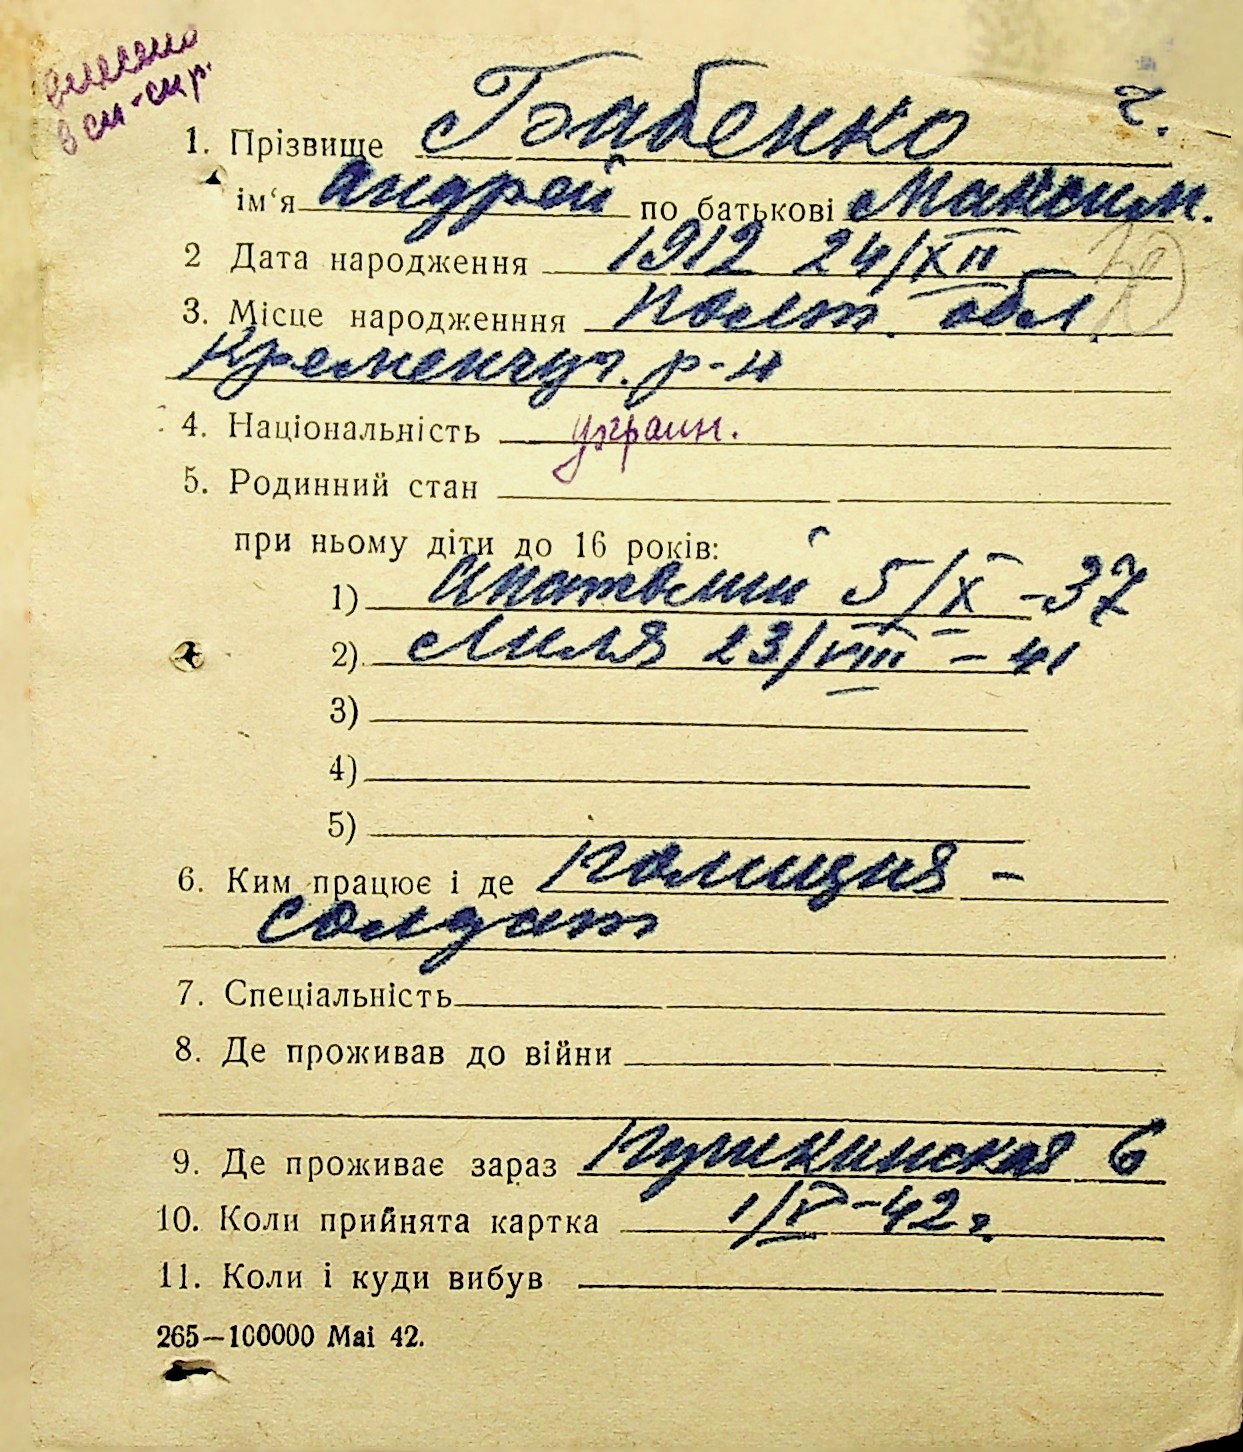 внесено
в сп-скр.
г.
1. Прізвище Бабенко
ім‘я Андрей по батькові Максим.
2 Дата народження 1912 24/XII
3. Місце народженння Полт. обл.
Кременчуг. р-н
4. Національність украин.
5. Родинний стан
при ньому діти до 16 років:
1) Анатолий 5/X - 37
2) Лиля 23/VIII - 41
3)
4)
5)
6. Ким працює і де Полиция -
солдат
7. Спеціальність
8. Де проживав до війни
9. Де проживає зараз Пушкинская 6
10. Коли прийнята картка 1/V - 42 г.
11. Коли і куди вибув
265—100000 Mai 42.